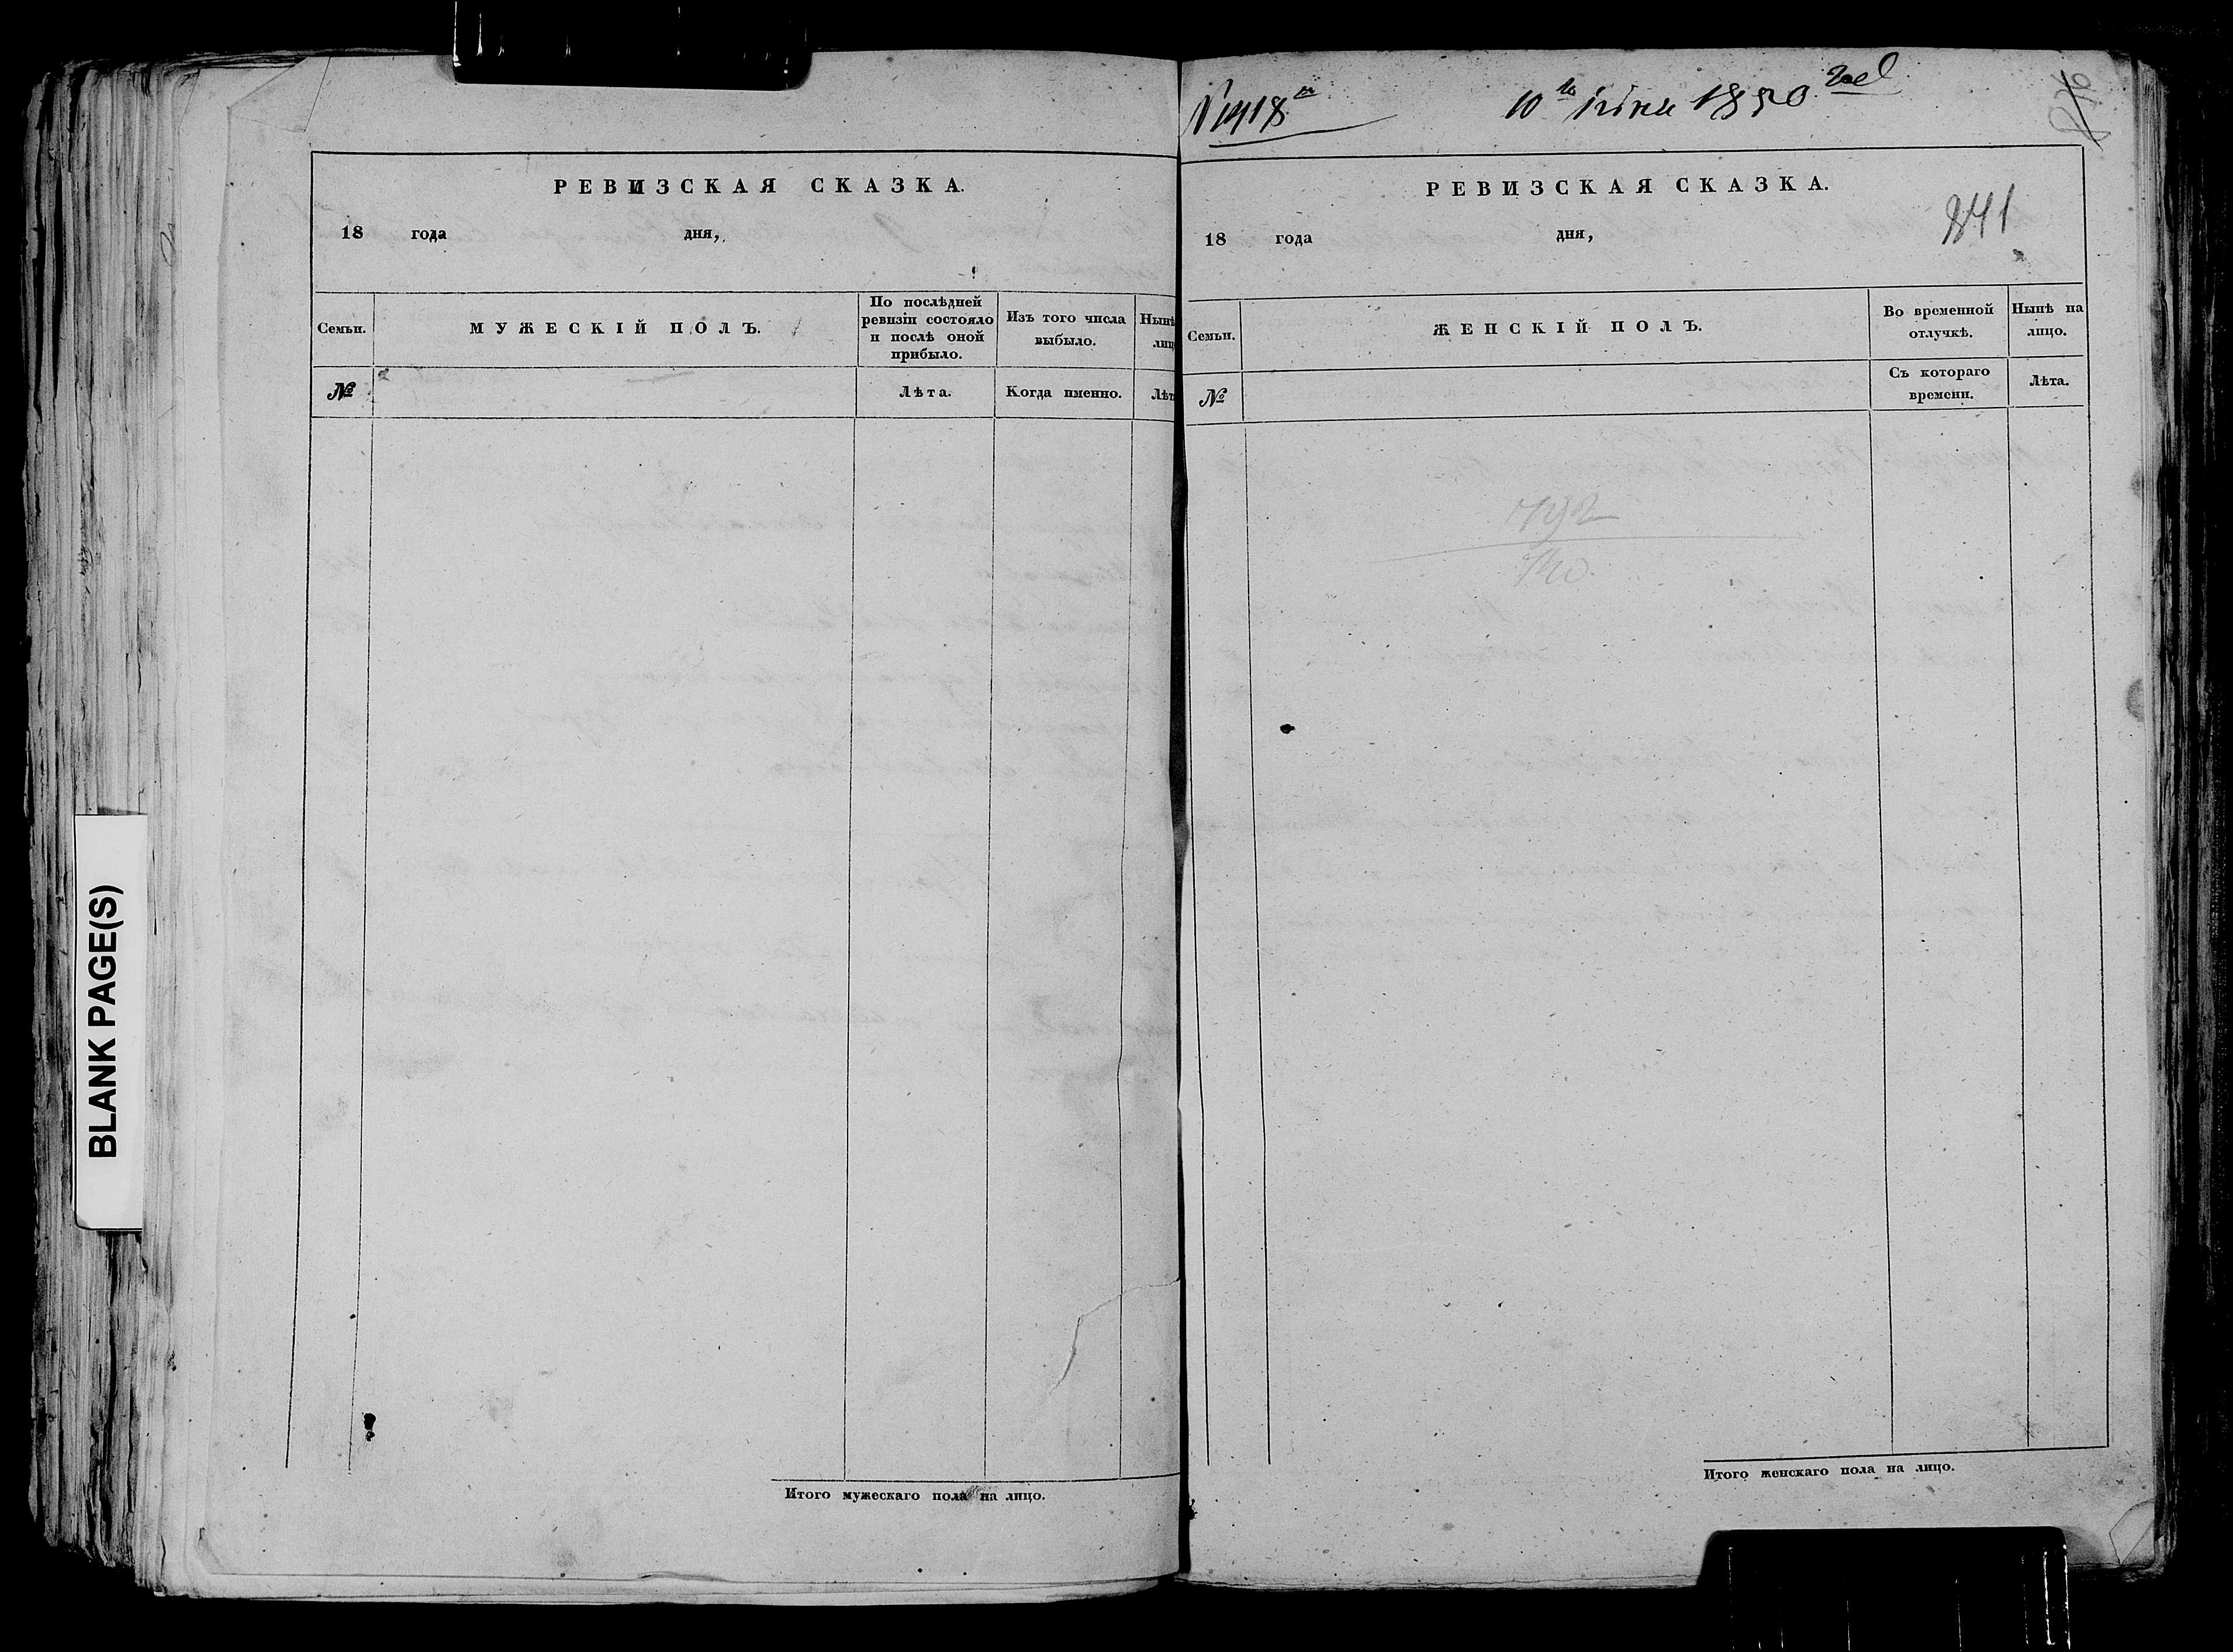 BLANK PAGE(S)
РЕВИЗСКАЯ СКАЗКА.
18 года дня,
Семьи.
МУЖЕСКІЙ ПОЛЪ.
По послѣдней
ревизіи состояло
и послѣ оной
прибыло.
Изъ того числа
выбыло.
Нынѣ
лиц
№
Лѣта.
Когда именно.
Лѣт
Итого мужескаго пола на лицо.
10го іюня 1850 года
РЕВИЗСКАЯ СКАЗКА.
841
18 года дня,
Семьи.
ЖЕНСКІЙ ПОЛЪ.
Во временной
отлучкѣ.
Нынѣ на
лицо.
№
Съ котораго
времени.
Лѣта.
Итого женскаго пола на лицо.